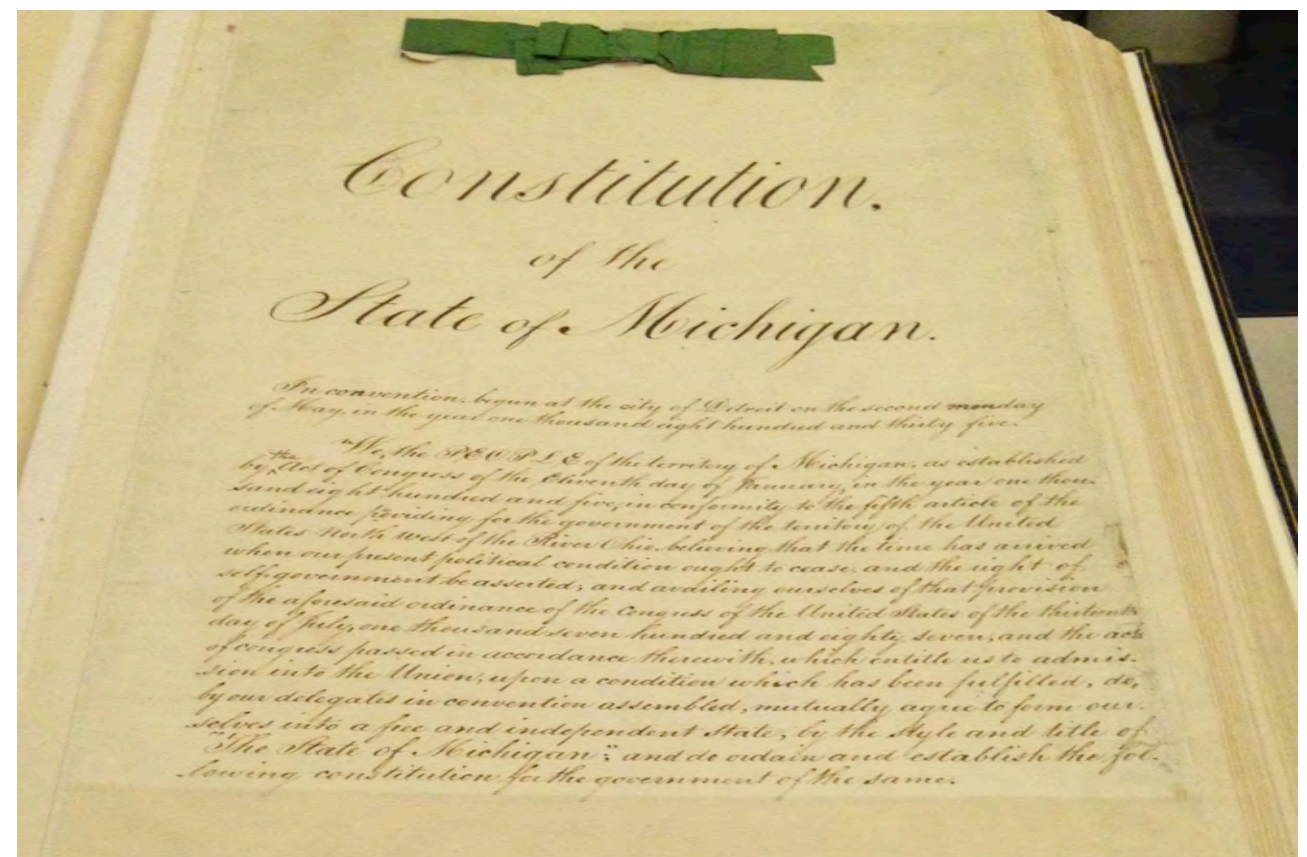 Constitution.
of the
State of Michigan.
In convention, begun at the city of Detroit on the second monday
of May, in the year one thousand eight hundred and thirty five.
"We, the PEOPLE of the territory of Michigan, as established
by the Act of Congress of the Eleventh day of January, in the year one thou-
sand eight hundred and five, in conformity to the fifth article of the
ordinance providing for the government of the territory of the United
States North West of the River Ohio, believing that the time has arrived
when our present political condition ought to cease, and the right of
self-government be asserted; and availing ourselves of that provision
of the aforesaid ordinance of the Congress of the United States of the thirteenth
day of July, one thousand seven hundred and eighty seven, and the acts
of congress passed in accordance therewith, which entitle us to admis-
sion into the Union, upon a condition which has been fulfilled, do,
by our delegates in convention assembled, mutually agree to form our-
selves into a free and independent State, by the style and title of
"The State of Michigan"; and do ordain and establish the fol-
lowing constitution for the government of the same.